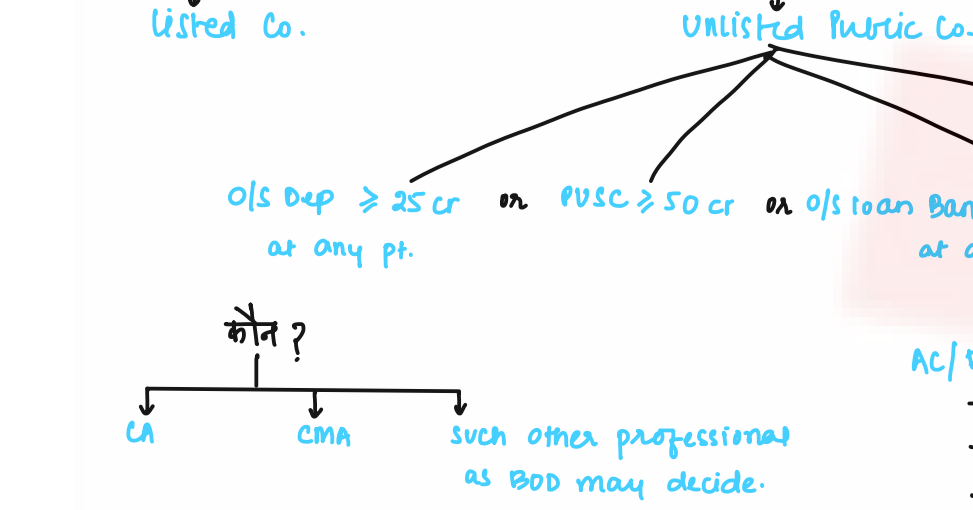 Listed Co.
Unlisted Public Co.
O/S Dep ≥ 25 cr or PUSC ≥ 50 cr or O/S loan
at any pt.
at
कौन ?
AC/
CA
CMA
such other professional
as BOD may decide.